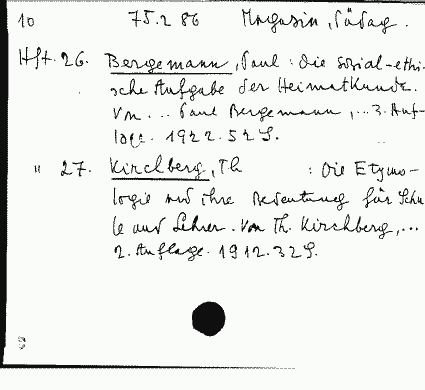 10 75.2 86 Magasin, Pädag.
Hft. 26. Bergemann, Paul: Die sozial-ethi-
sche Aufgabe der Heimatkunde.
Von ... Paul Bergemann, ... 3. Auf-
lage. 1922. 52 S.
" 27. Kirchberg, Th : Die Etymo-
logie und ihre Bedeutung für Schu
le und Lehrer. Von Th. Kirchberg, ...
2. Auflage. 1912. 32 S.